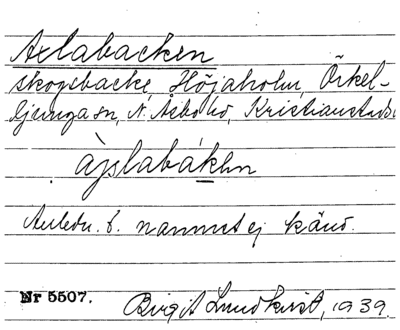 Axlabacken
skogsbacke, Höjaholm, Örkel-
ljunga sn, N. Åsbo hd, Kristianstads
àjslabákḷn
Anledn. t. namnet ej känd.
Nr 5507. Birgit Lundkvist, 1939.